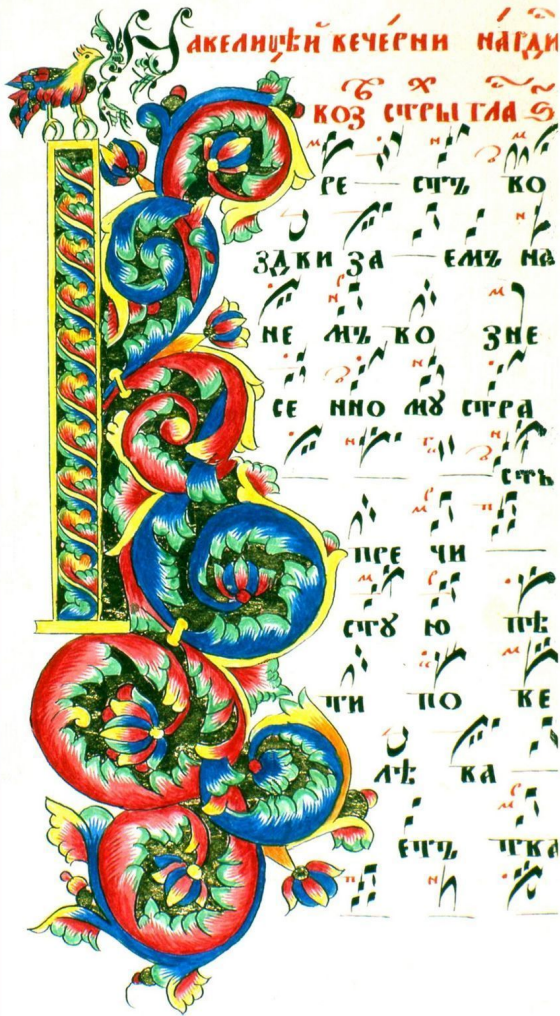 На велицѣй вечерни на гд҇и
воз стхры гла ѕ҃
К ре стъ во
здви за емъ на
не мъ во зне
се нно му стра
сть
пре чи
стꙋ ю пѣ
ти по ве
лѣ ва
етъ тва